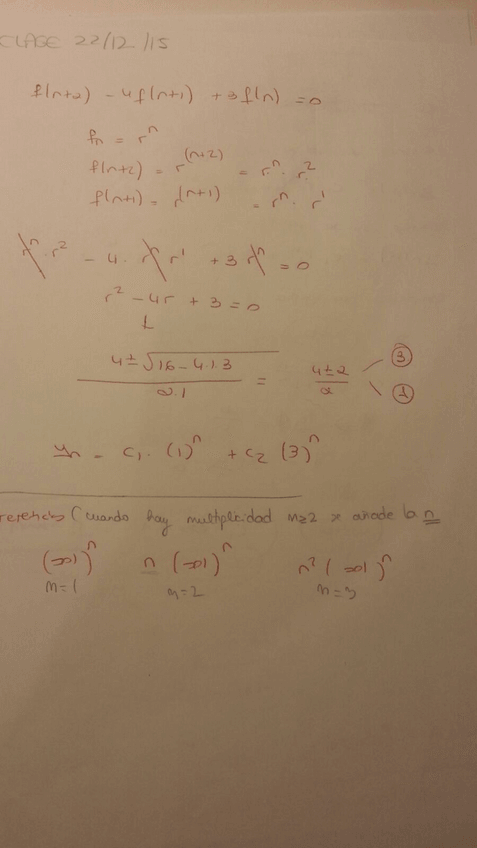 CLASE 22/12/15
f(n+2) - 4f(n+1) + 3f(n) = 0
fn = r^n
f(n+2) = r^(n+2) = r^n · r^2
f(n+1) = r^(n+1) = r^n · r^1
r^n · r^2 - 4 · r^n r^1 + 3 r^n = 0
r^2 - 4r + 3 = 0
4 ± √16 - 4.1.3 / 2.1 = 4±2 / 2 3 1
yn = C1 · (1)^n + C2 (3)^n
(cuando hay multiplicidad m≥2 x añade la n
(sol)^n n (sol)^n n^2 (sol)^n
m=1 m=2 m=3